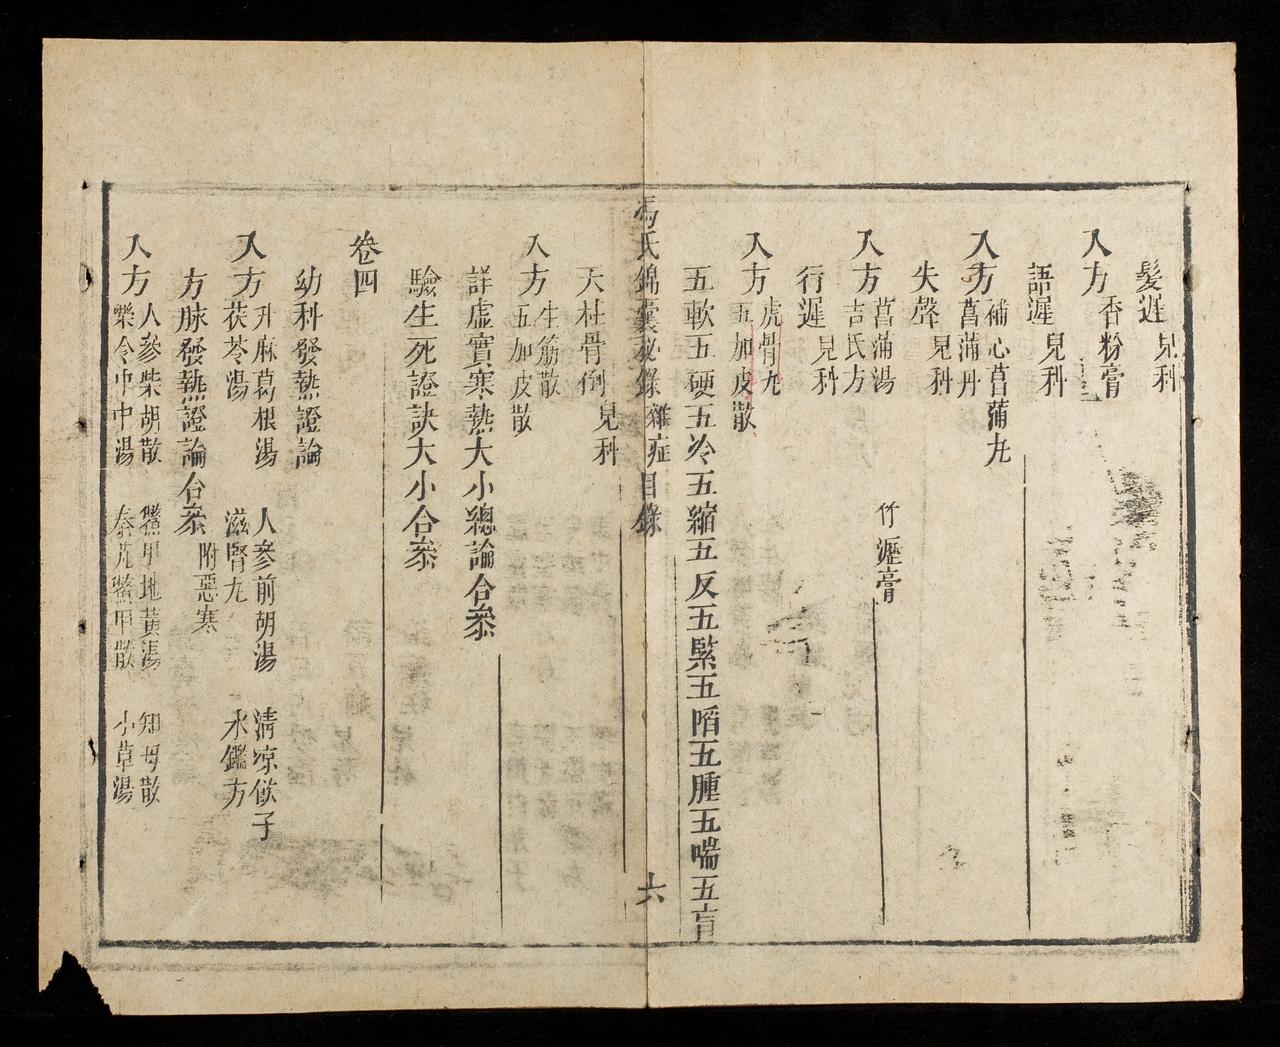 髮遲 兒科
入方 香粉膏
語遲 兒科
入方 補心菖蒲丸
菖蒲丹
失聲 兒科
入方 菖蒲湯 竹瀝膏
吉氏方
行遲 兒科
入方 虎骨丸
五加皮散
五軟五硬五冷五縮五反五緊五陷五腫五喘五盲
馮氏錦囊秘錄 雜症 目錄 六
天柱骨倒 兒科
入方 生筋散
五加皮散
詳虛實寒熱大小總論合參
驗生死證訣大小合參
卷四
幼科發熱證論
入方 升麻葛根湯 人參前胡湯 清凉飲子
茯苓湯 滋腎丸 水鑑方
方脉發熱證論合參 附惡寒
入方 人參柴胡散 鱉甲地黃湯 知母散
樂令中中湯 秦艽鱉甲散 小草湯